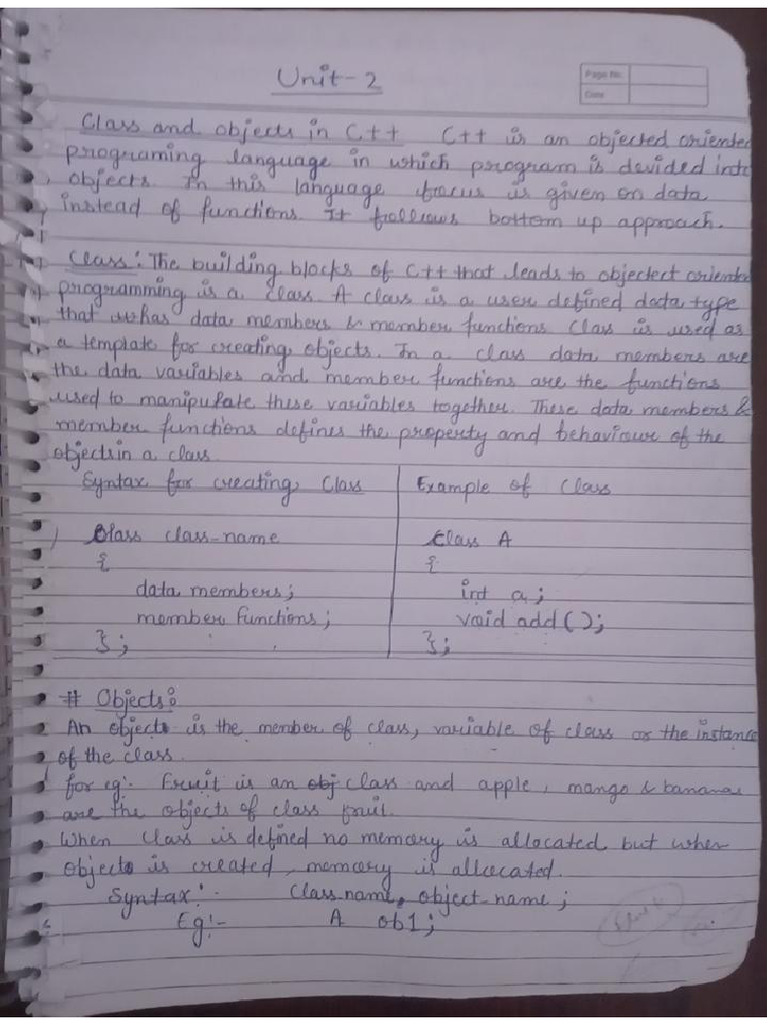 Unit-2
Page No.
Date
Class and objects in C++ C++ is an objected oriented
programing language in which program is devided into
objects. In this language focus is given on data
instead of functions. It follows bottom up approach.
Class: The building blocks of C++ that leads to objectect oriented
programming is a class. A class is a user defined data type
that has data members & member functions. Class is used as
a template for creating objects. In a class data members are
the data variables and member functions are the functions
used to manipulate these variables together. These data members &
member functions defines the property and behaviour of the
objects in a class
Syntax for creating Class
Class class-name
{
data members;
member functions;
};
Example of Class
Class A
{
int a;
void add();
};
# Objects:
An object is the member of class, variable of class or the instance
of the class.
for eg:- Fruit is an obj class and apple, mango & banana
are the objects of class fruit.
When class is defined no memory is allocated but when
object is created, memory is allocated.
Syntax:- Class name, object-name;
Eg:- A ob1;